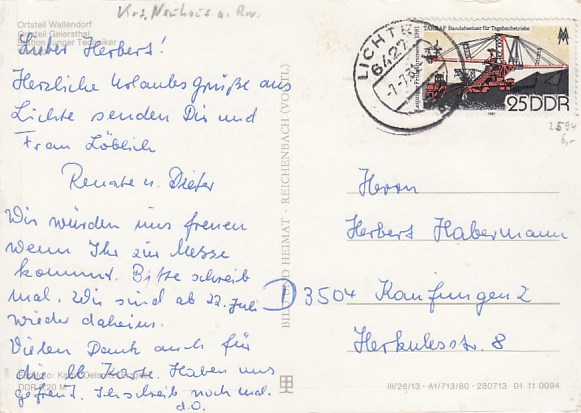 Krs. Neuhaus a. Rw.
Ortsteil Wallendorf
Ortsteil Geiersthal
Station Junger Techniker
Lieber Herbert!
Herzliche Urlaubsgrüße aus
Lichte senden Dir und
Frau Löblich
Renate u. Dieter
Wir würden uns freuen
wenn Ihr zur Messe
kommt. Bitte schreib
mal. Wir sind ab 22. Juli
wieder daheim.
Vielen Dank auch für
die lb Karte. Haben uns
gefreut. Ich schreib noch mal.
d.O.
DDR 0,20 M
BILD UND HEIMAT · REICHENBACH (VOGTL)
LICHTE
6427
-7.7.81
TAKRAF Bandabsetzer für Tagebaubetriebe
Leipziger Frühjahrsmesse 1981
25 DDR
1981
2594
6,-
Herrn
Herbert Habermann
D 3504 Kaufungen 2
Herkulesstr. 8
III/26/13 · A1/713/80 · 280713 01 11 0094